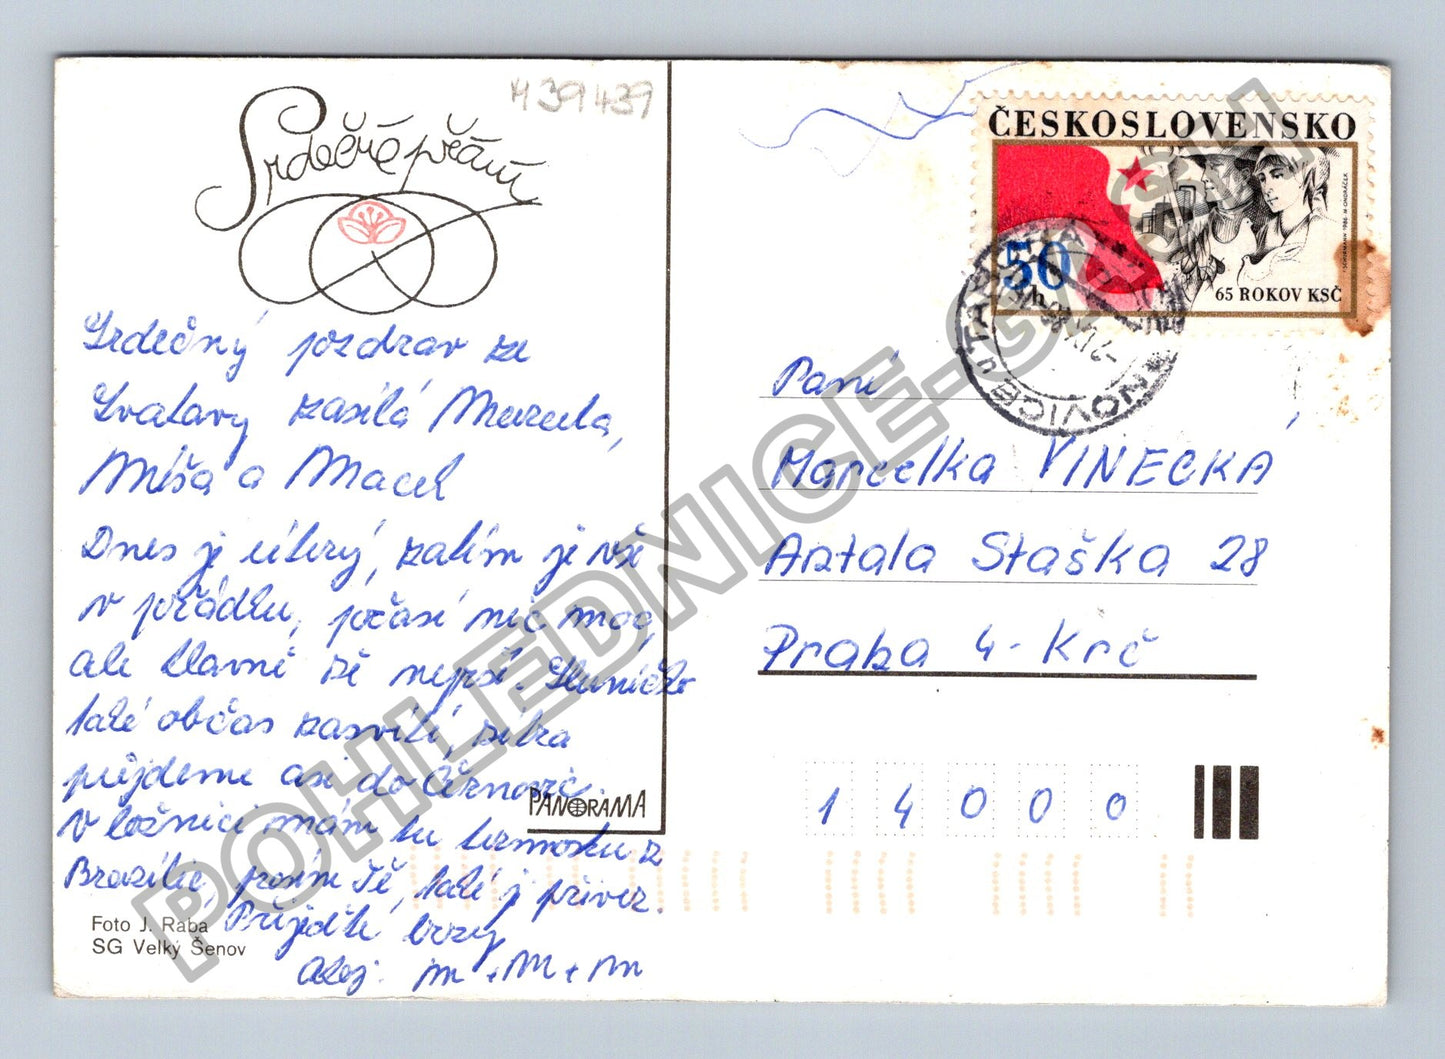 M 39439
Srdečné přání
Srdečný pozdrav ze
Svatavy zasílá Maruela,
Míša a Macek
Dnes je úterý, zatím je vše
v pořádku, počasí nic moc,
ale hlavně že neprší. Sluníčko
také občas zasvítí, zítra
přijdeme asi do Černovic.
V ložnici mám tu termosku z
Brazílie, prosím Tě, také ji přivez.
Přijďte brzy
Ahoj. m + M + m
PANORAMA
Foto J. Rába
SG Velký Šenov
ČESKOSLOVENSKO
50 h
65 ROKOV KSČ
F. SCHURMANN 1986 M. ONDRÁČEK
TÁBORA
NOVICE U
Paní
Marcelka VINECKÁ
Antala Staška 28
Praha 4 - Krč
1 4 0 0 0
POHLEDNICE-GMASH